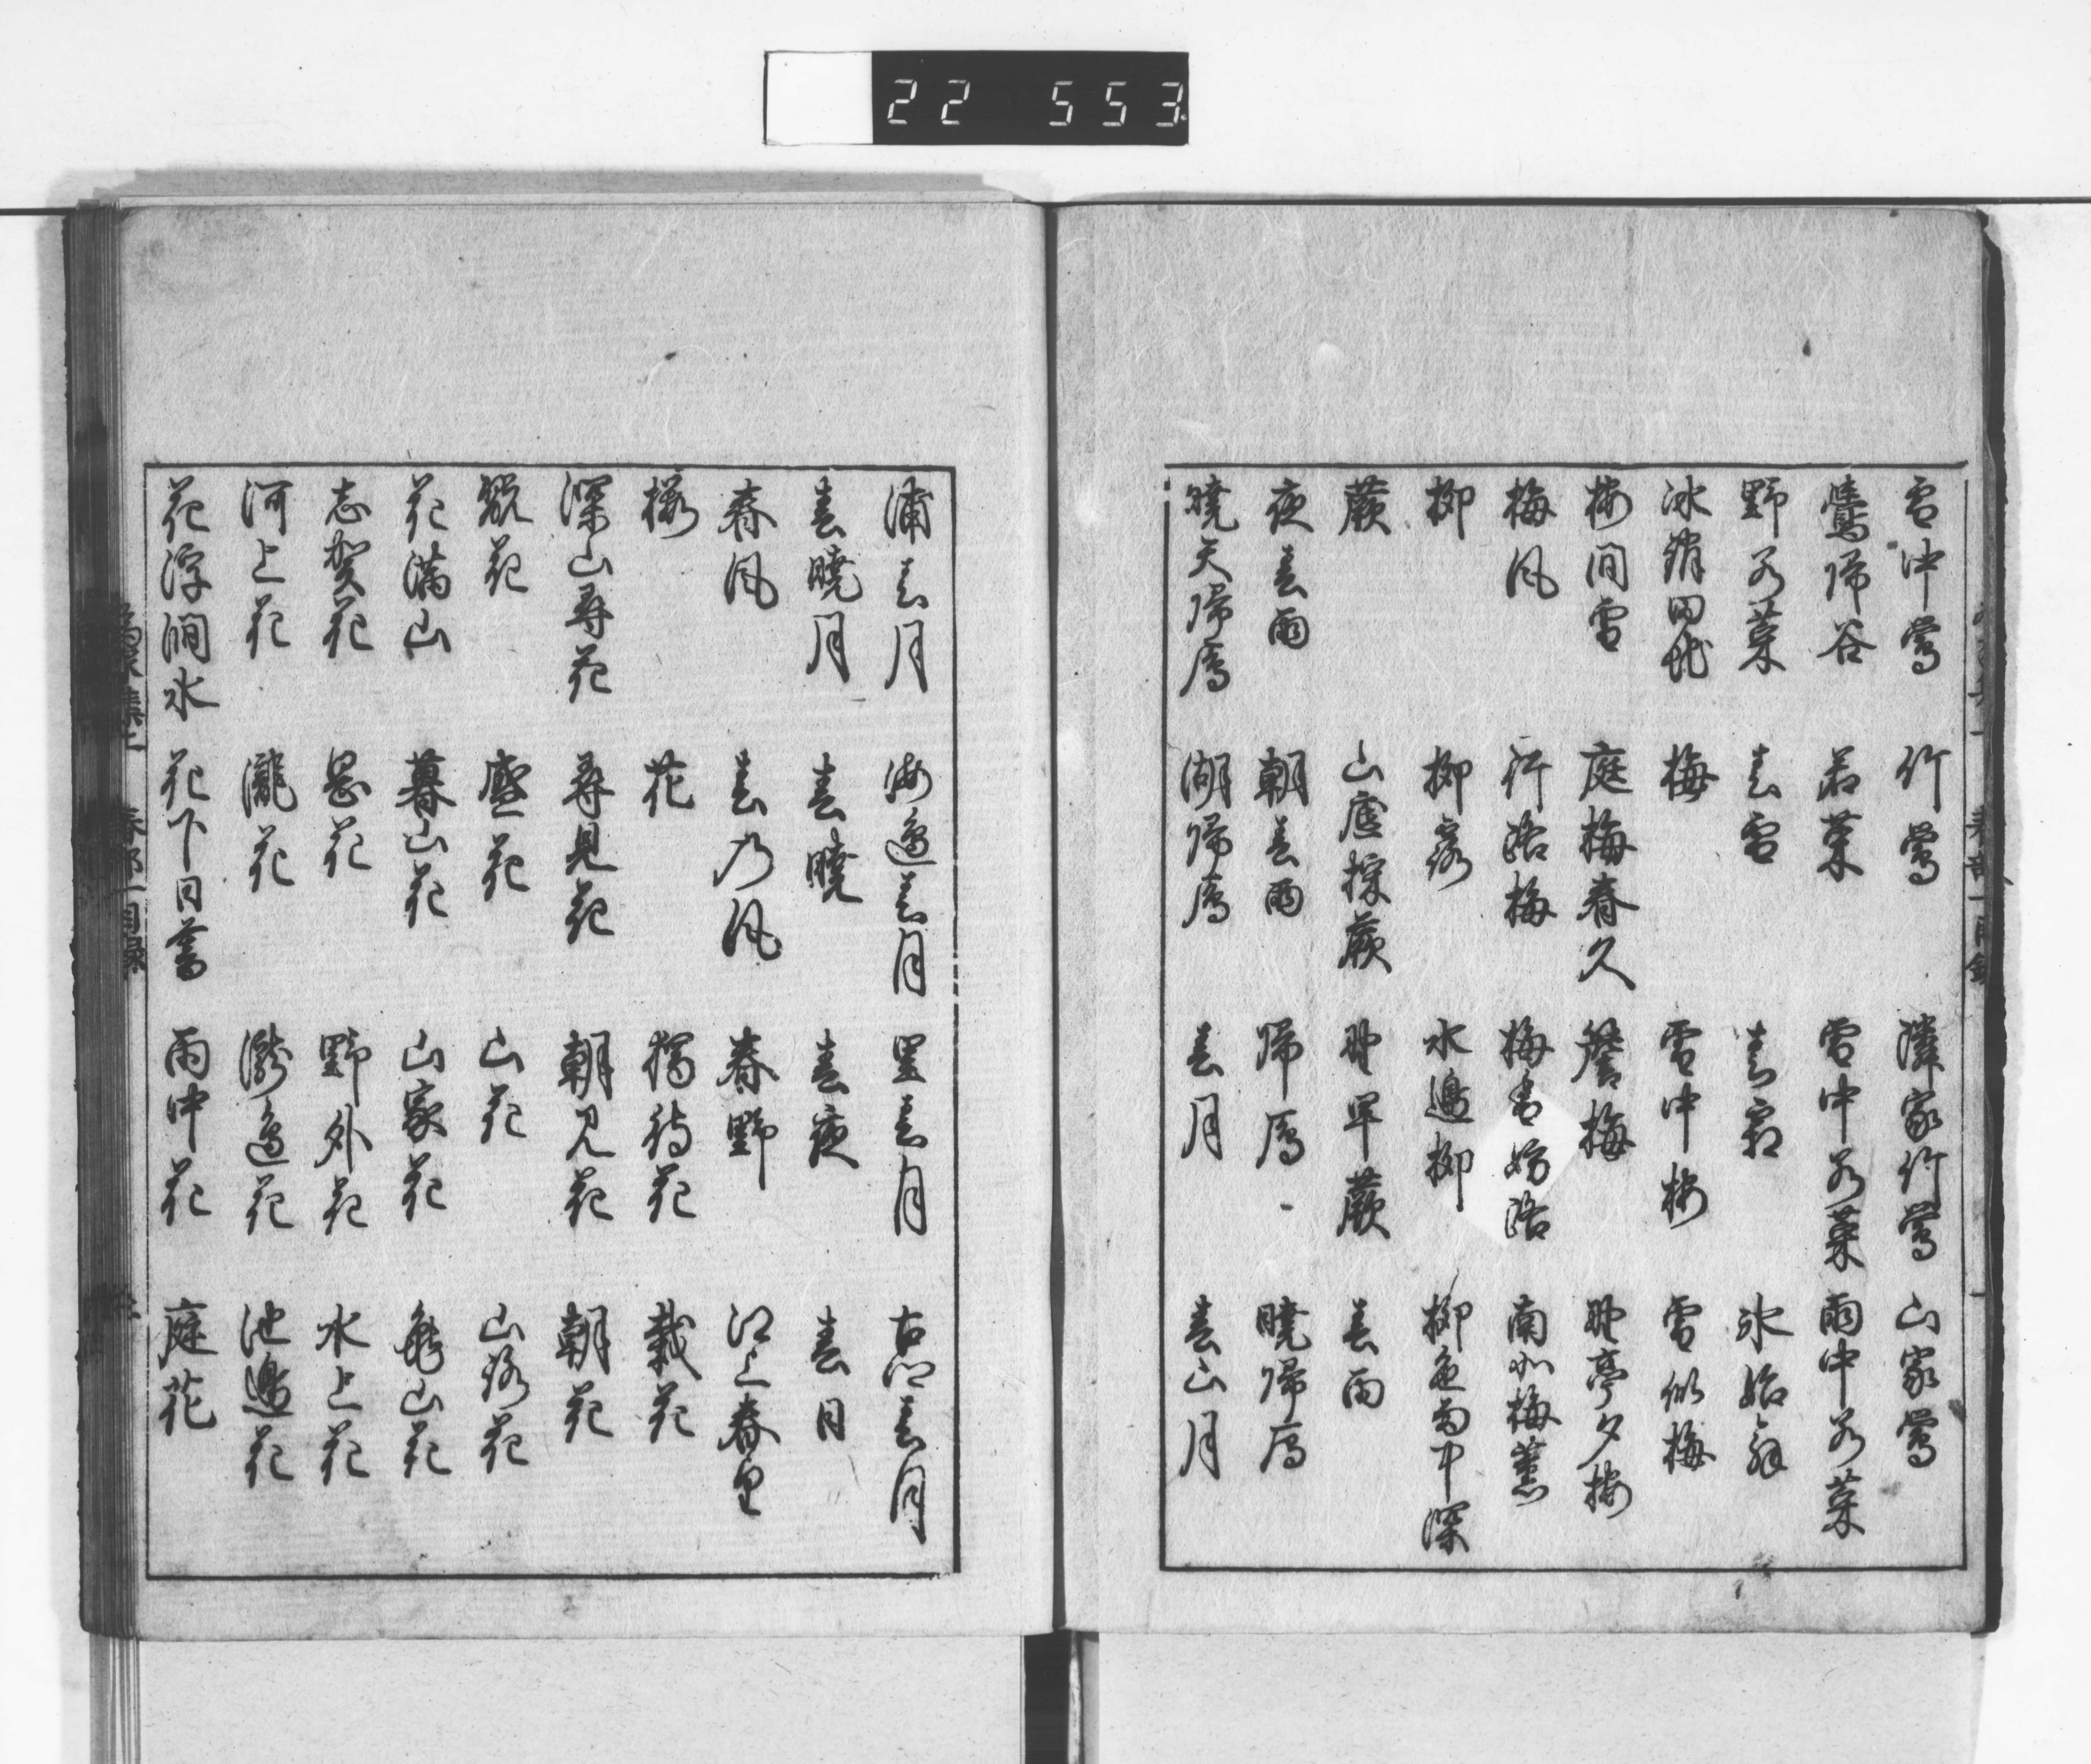 22 553
雪中鶯 竹鶯 隣家竹鶯 山家鶯
鶯帰谷 若菜 雪中若菜 雨中若菜
野若菜 春雪 春霜 氷始解
氷消田地 梅 雪中梅 雪似梅
梅間雪 庭梅春久 簷梅 野亭夕梅
梅風 行路梅 梅香妨路 南北梅薫
柳 柳露 水邊柳 柳色雨中深
蕨 山虚採蕨 野早蕨 春雨
夜春雨 朝春雨 帰鴈 暁帰鴈
暁天帰鴈 湖帰鴈 春月 春山月
浦春月 海邊春月 里春月 古郷春月
春暁月 春暁 春夜 春日
春風 春乃風 春野 江上春望
桜 花 獨待花 栽花
深山尋花 尋見花 朝見花 朝花
翫花 盛花 山花 山路花
花満山 暮山花 山家花 亀山花
志賀花 関花 野外花 水上花
河上花 瀧花 瀧邊花 池邊花
花浮澗水 花下日暮 雨中花 庭花
春部一目録